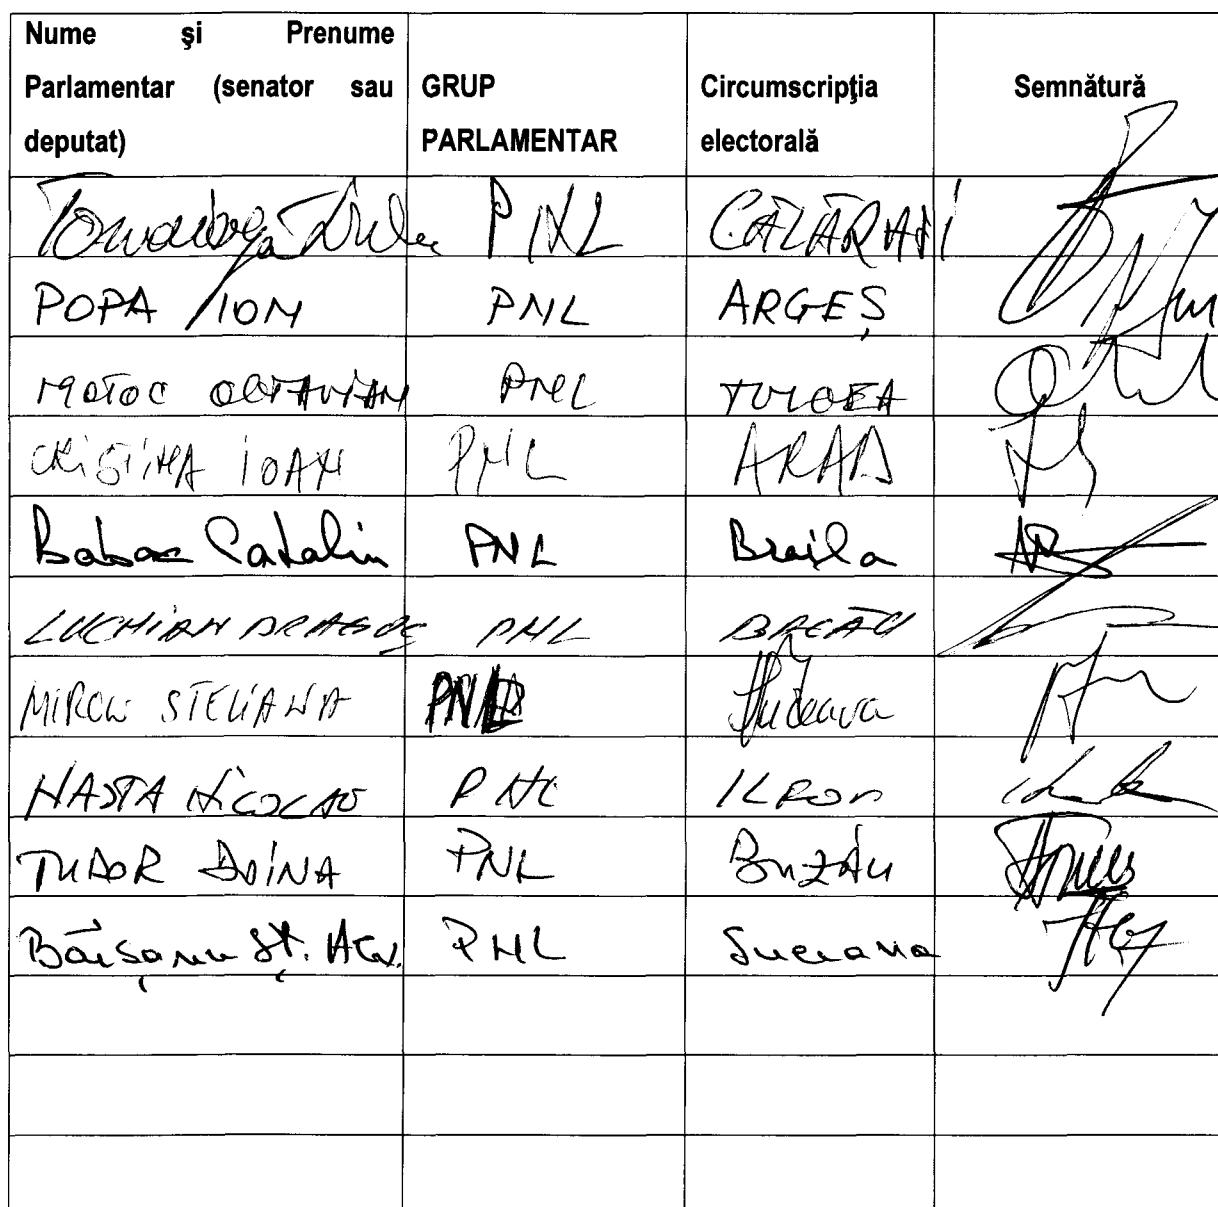 Nume și Prenume
Parlamentar (senator sau
deputat)
GRUP
PARLAMENTAR
Circumscripţia
electorală
Semnătură
PNL CĂLĂRAȘI
POPA ION PNL ARGEȘ
MOTOC OCTAVIAN PNL TULCEA
CRISTINA IOAN PNL ARAD
Babac Catalin PNL Braila
LUCHIAN DRAGOȘ PNL BACĂU
STELIANA PNL Suceava
PNL
TUDOR DOINA PNL Buzău
PNL Suceava